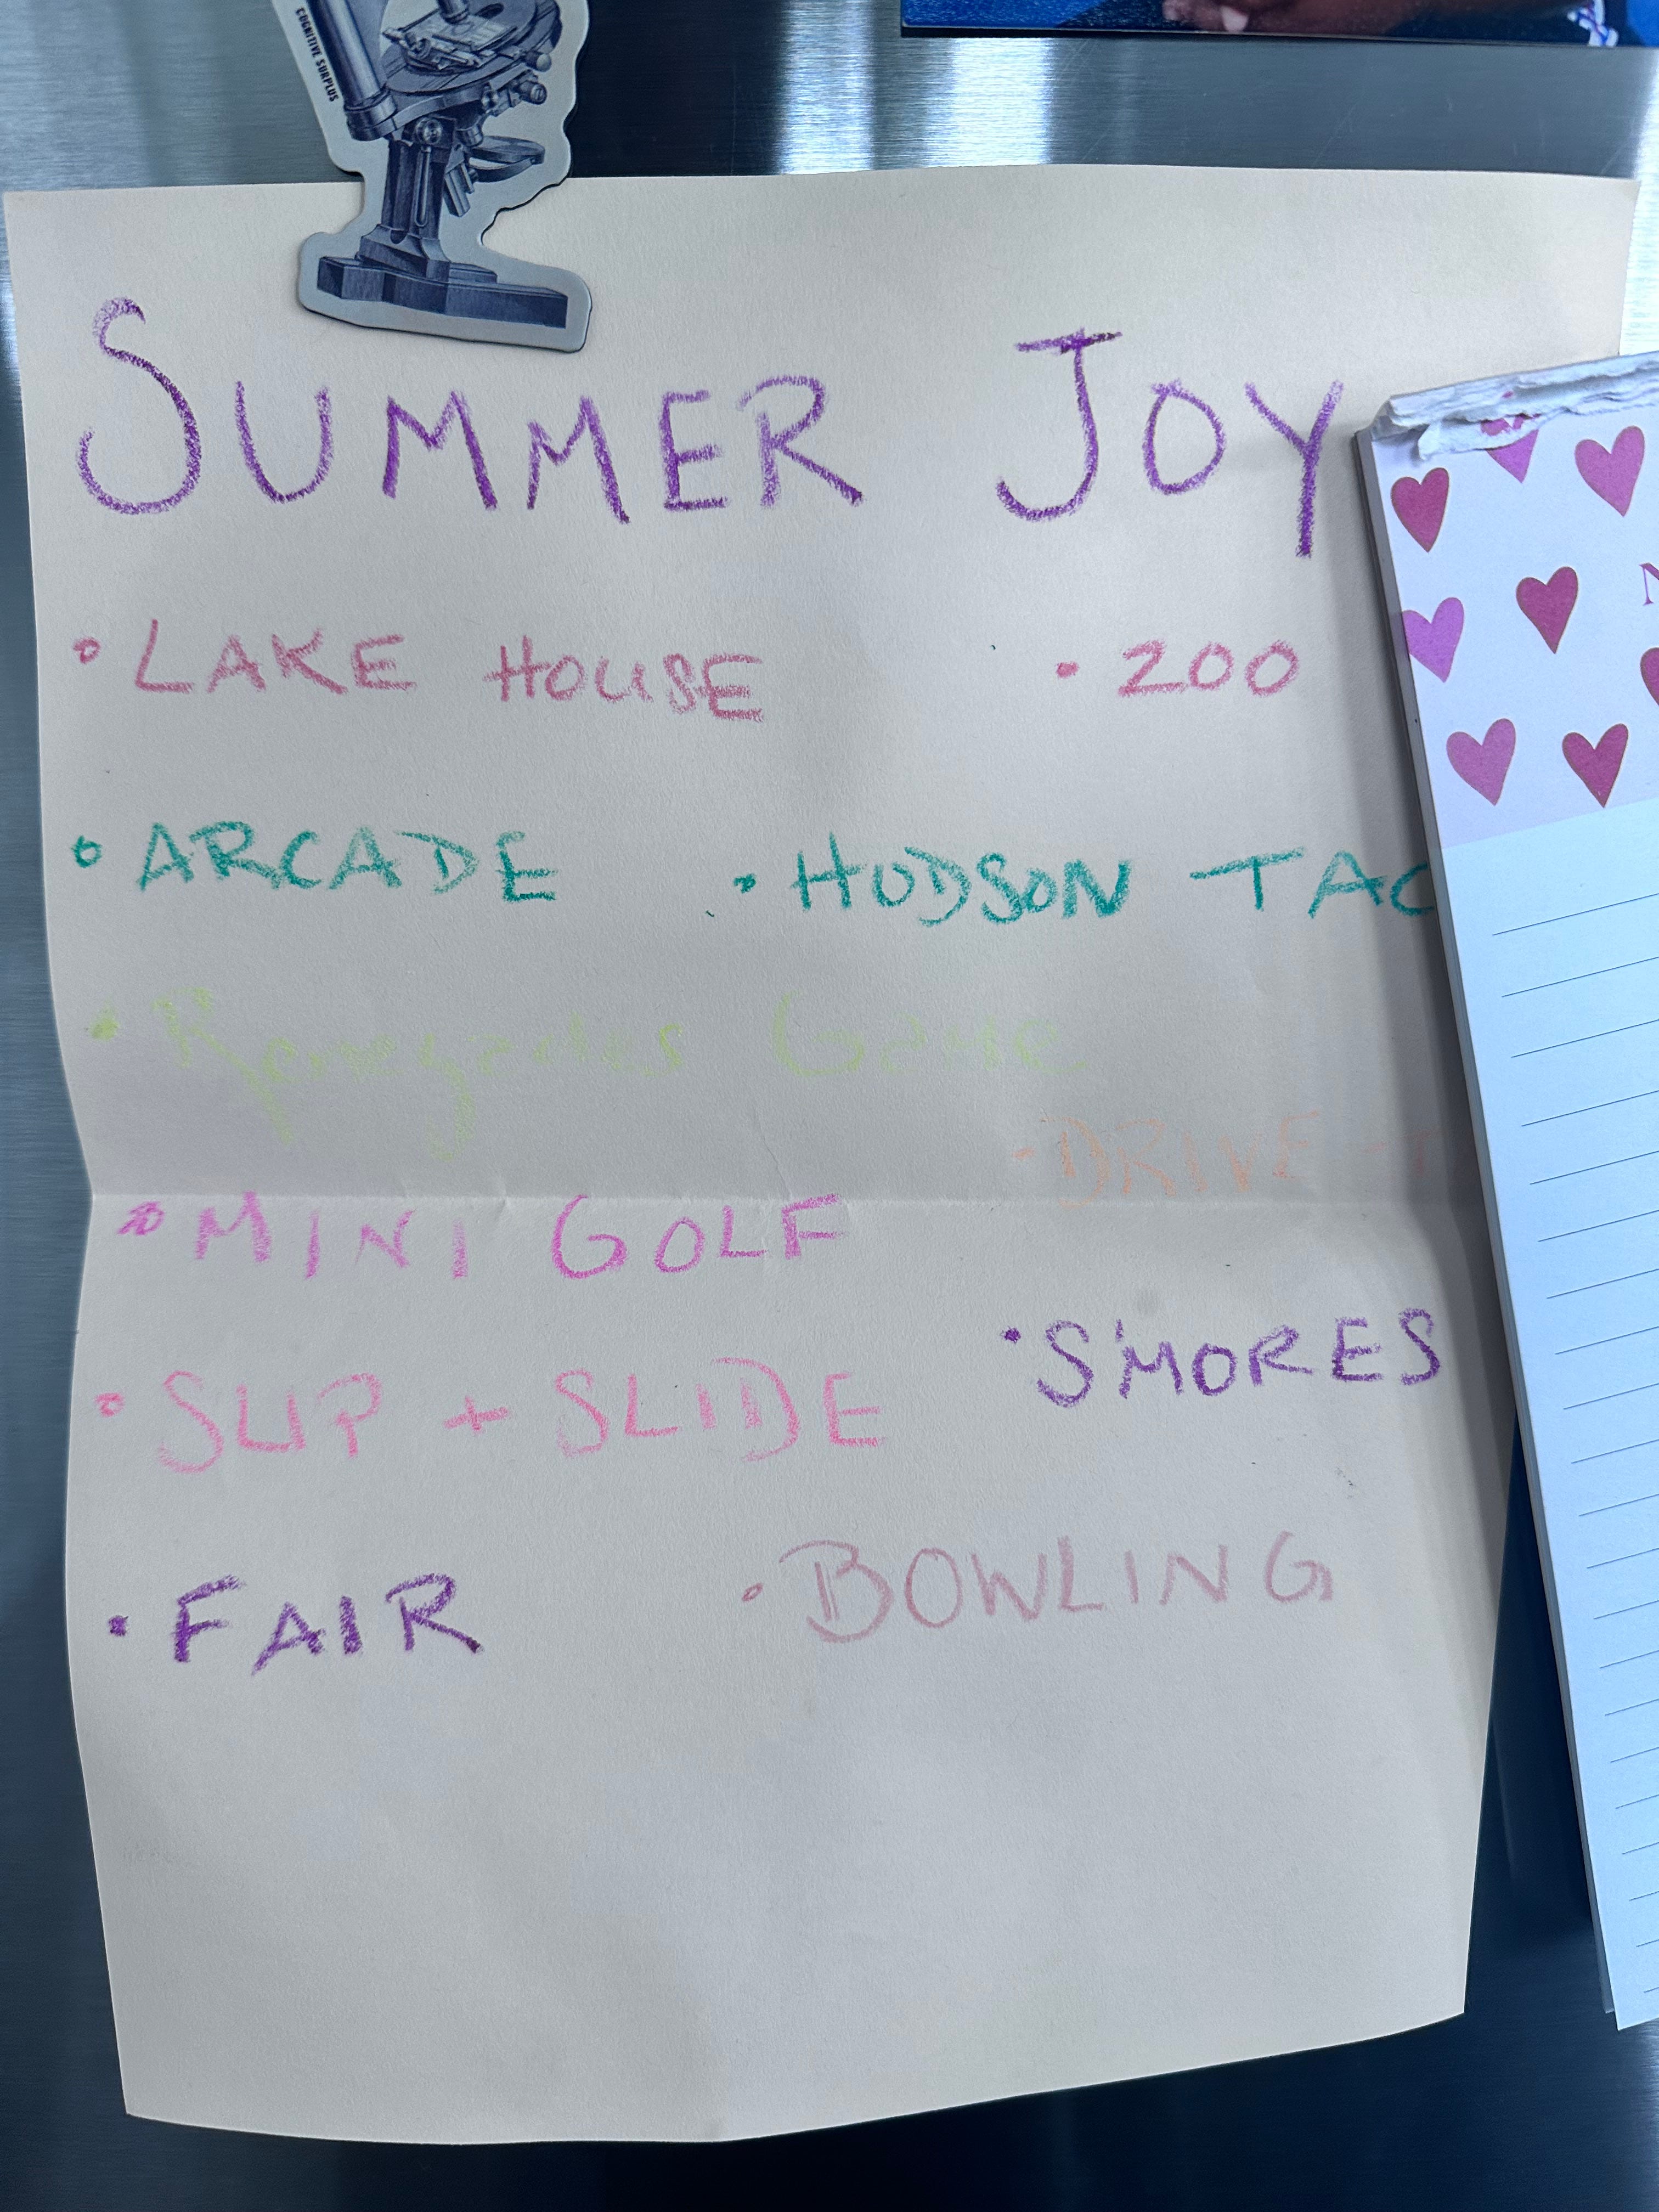 COGNITIVE SURPLUS
SUMMER JOY
• LAKE HOUSE • 200
• ARCADE • HUDSON TAC
• Renegades Game
• DRIVE-I
• MINI GOLF
• S'MORES
• SLIP + SLIDE
• FAIR • BOWLING